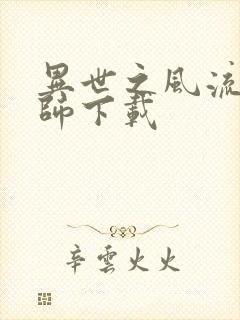 異世之風流
師下載
辛雲火火